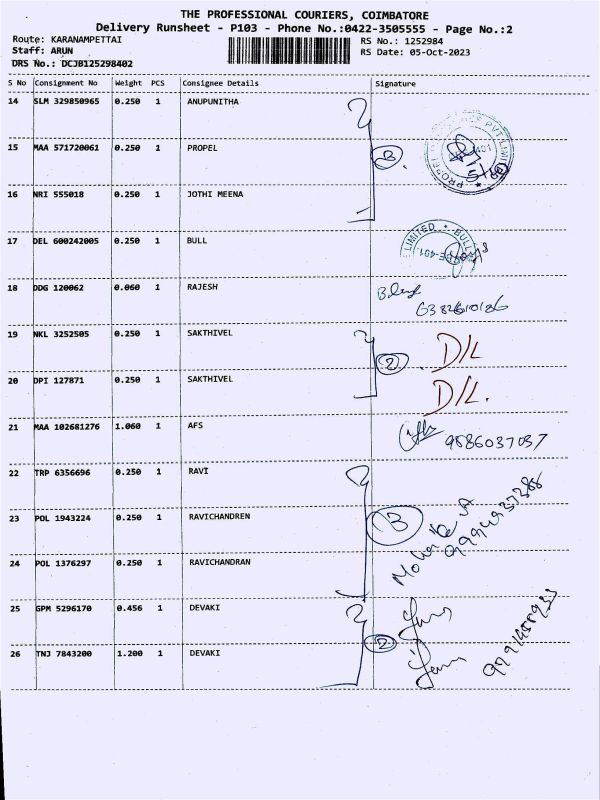 THE PROFESSIONAL COURIERS, COIMBATORE
Delivery Runsheet - P103 - Phone No.:0422-3505555 - Page No.:2
Route: KARANAMPETTAI RS No.: 1252984
Staff: ARUN RS Date: 05-Oct-2023
DRS No.: DCJB125298402
S No Consignment No Weight PCS Consignee Details Signature
14 SLM 329850965 0.250 1 ANUPUNITHA
15 MAA 571720061 0.250 1 PROPEL 3
16 NRI 555018 0.250 1 JOTHI MEENA
17 DEL 600242005 0.250 1 BULL
LIMITED * BULL
18 DDG 120062 0.060 1 RAJESH
19 NKL 3252505 0.250 1 SAKTHIVEL D/L
2
20 DPI 127871 0.250 1 SAKTHIVEL D/L.
21 MAA 102681276 1.060 1 AFS 9586037037
22 TRP 6356696 0.250 1 RAVI
23 POL 1943224 0.250 1 RAVICHANDREN 3
24 POL 1376297 0.250 1 RAVICHANDRAN
25 GPM 5296170 0.456 1 DEVAKI
2
26 TNJ 7843200 1.200 1 DEVAKI